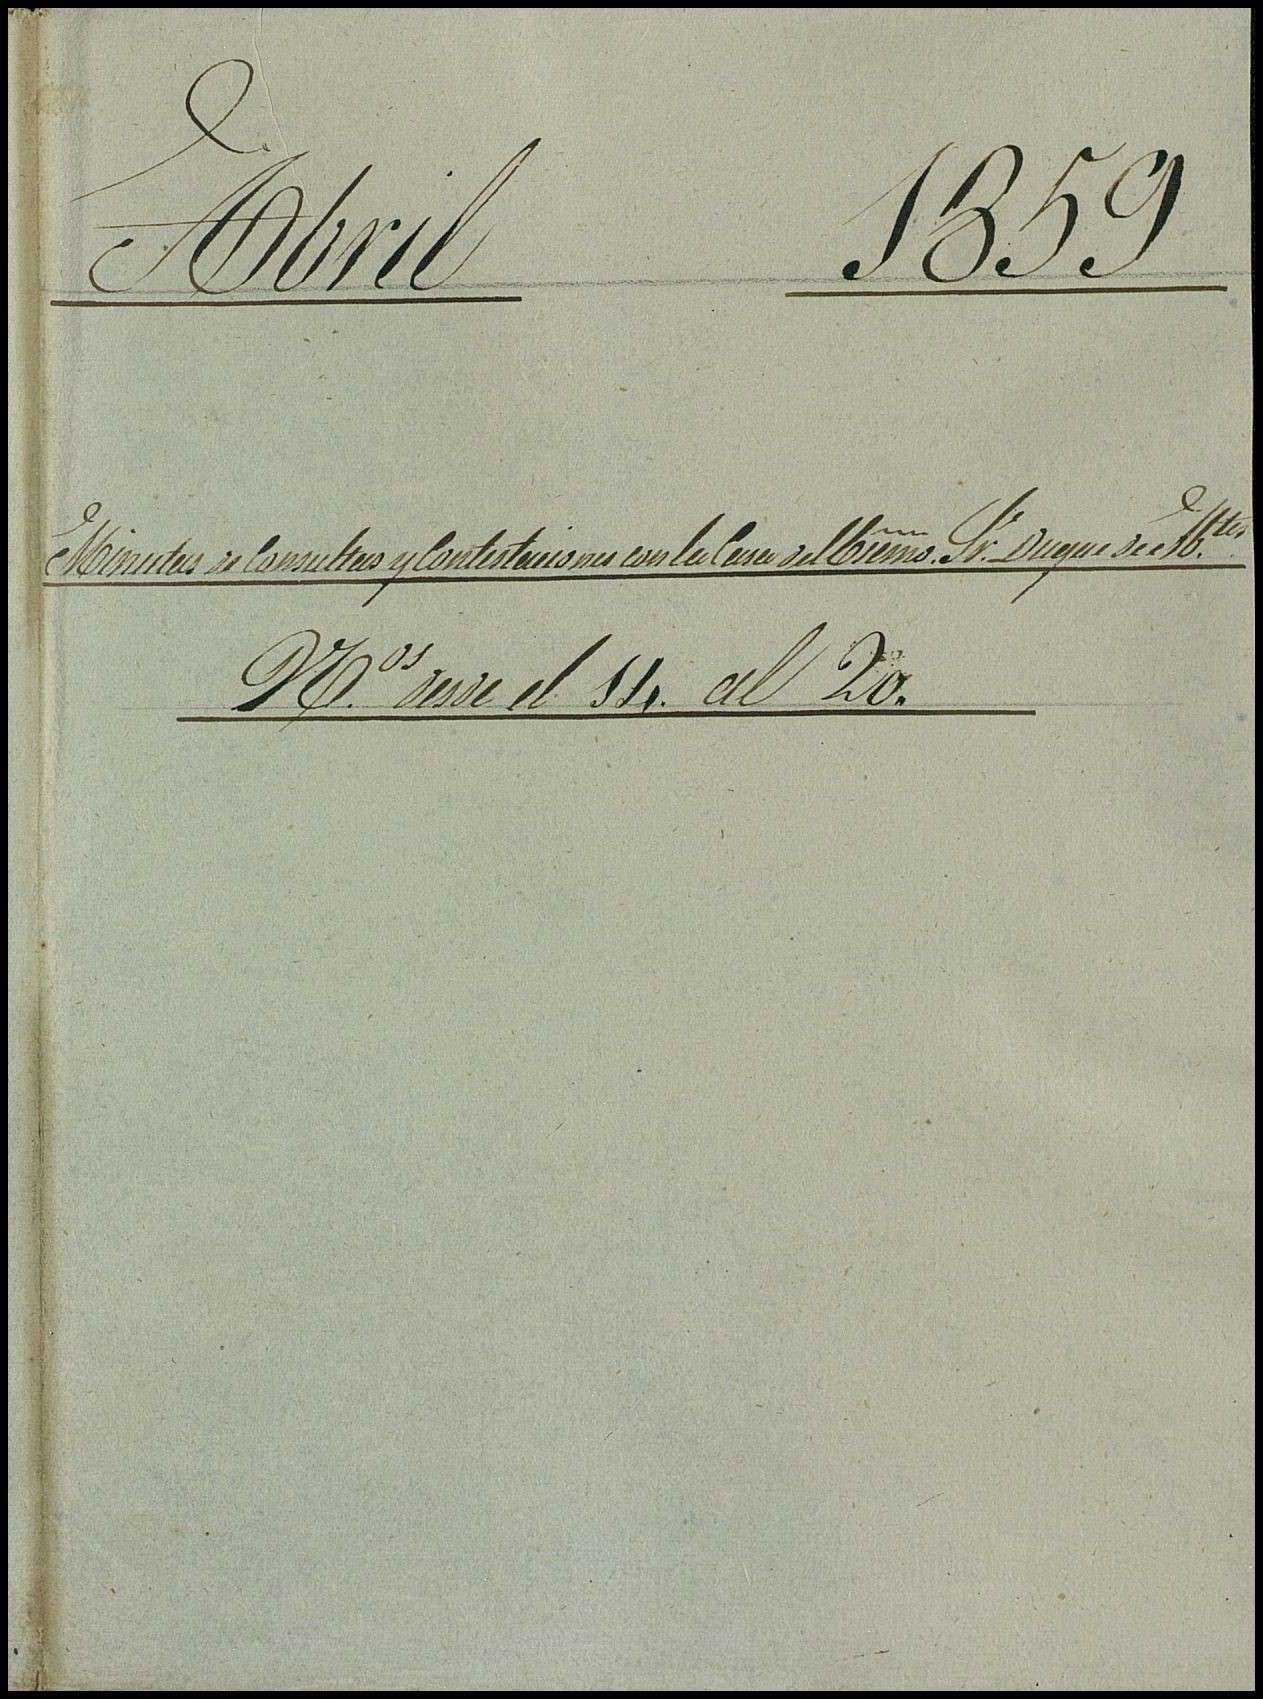 Abril 1859
Minutas de Consultas y Contestaciones con la Casa del Excmo. Sr. Duque de M.tes
N.os desde el 14. al 20.